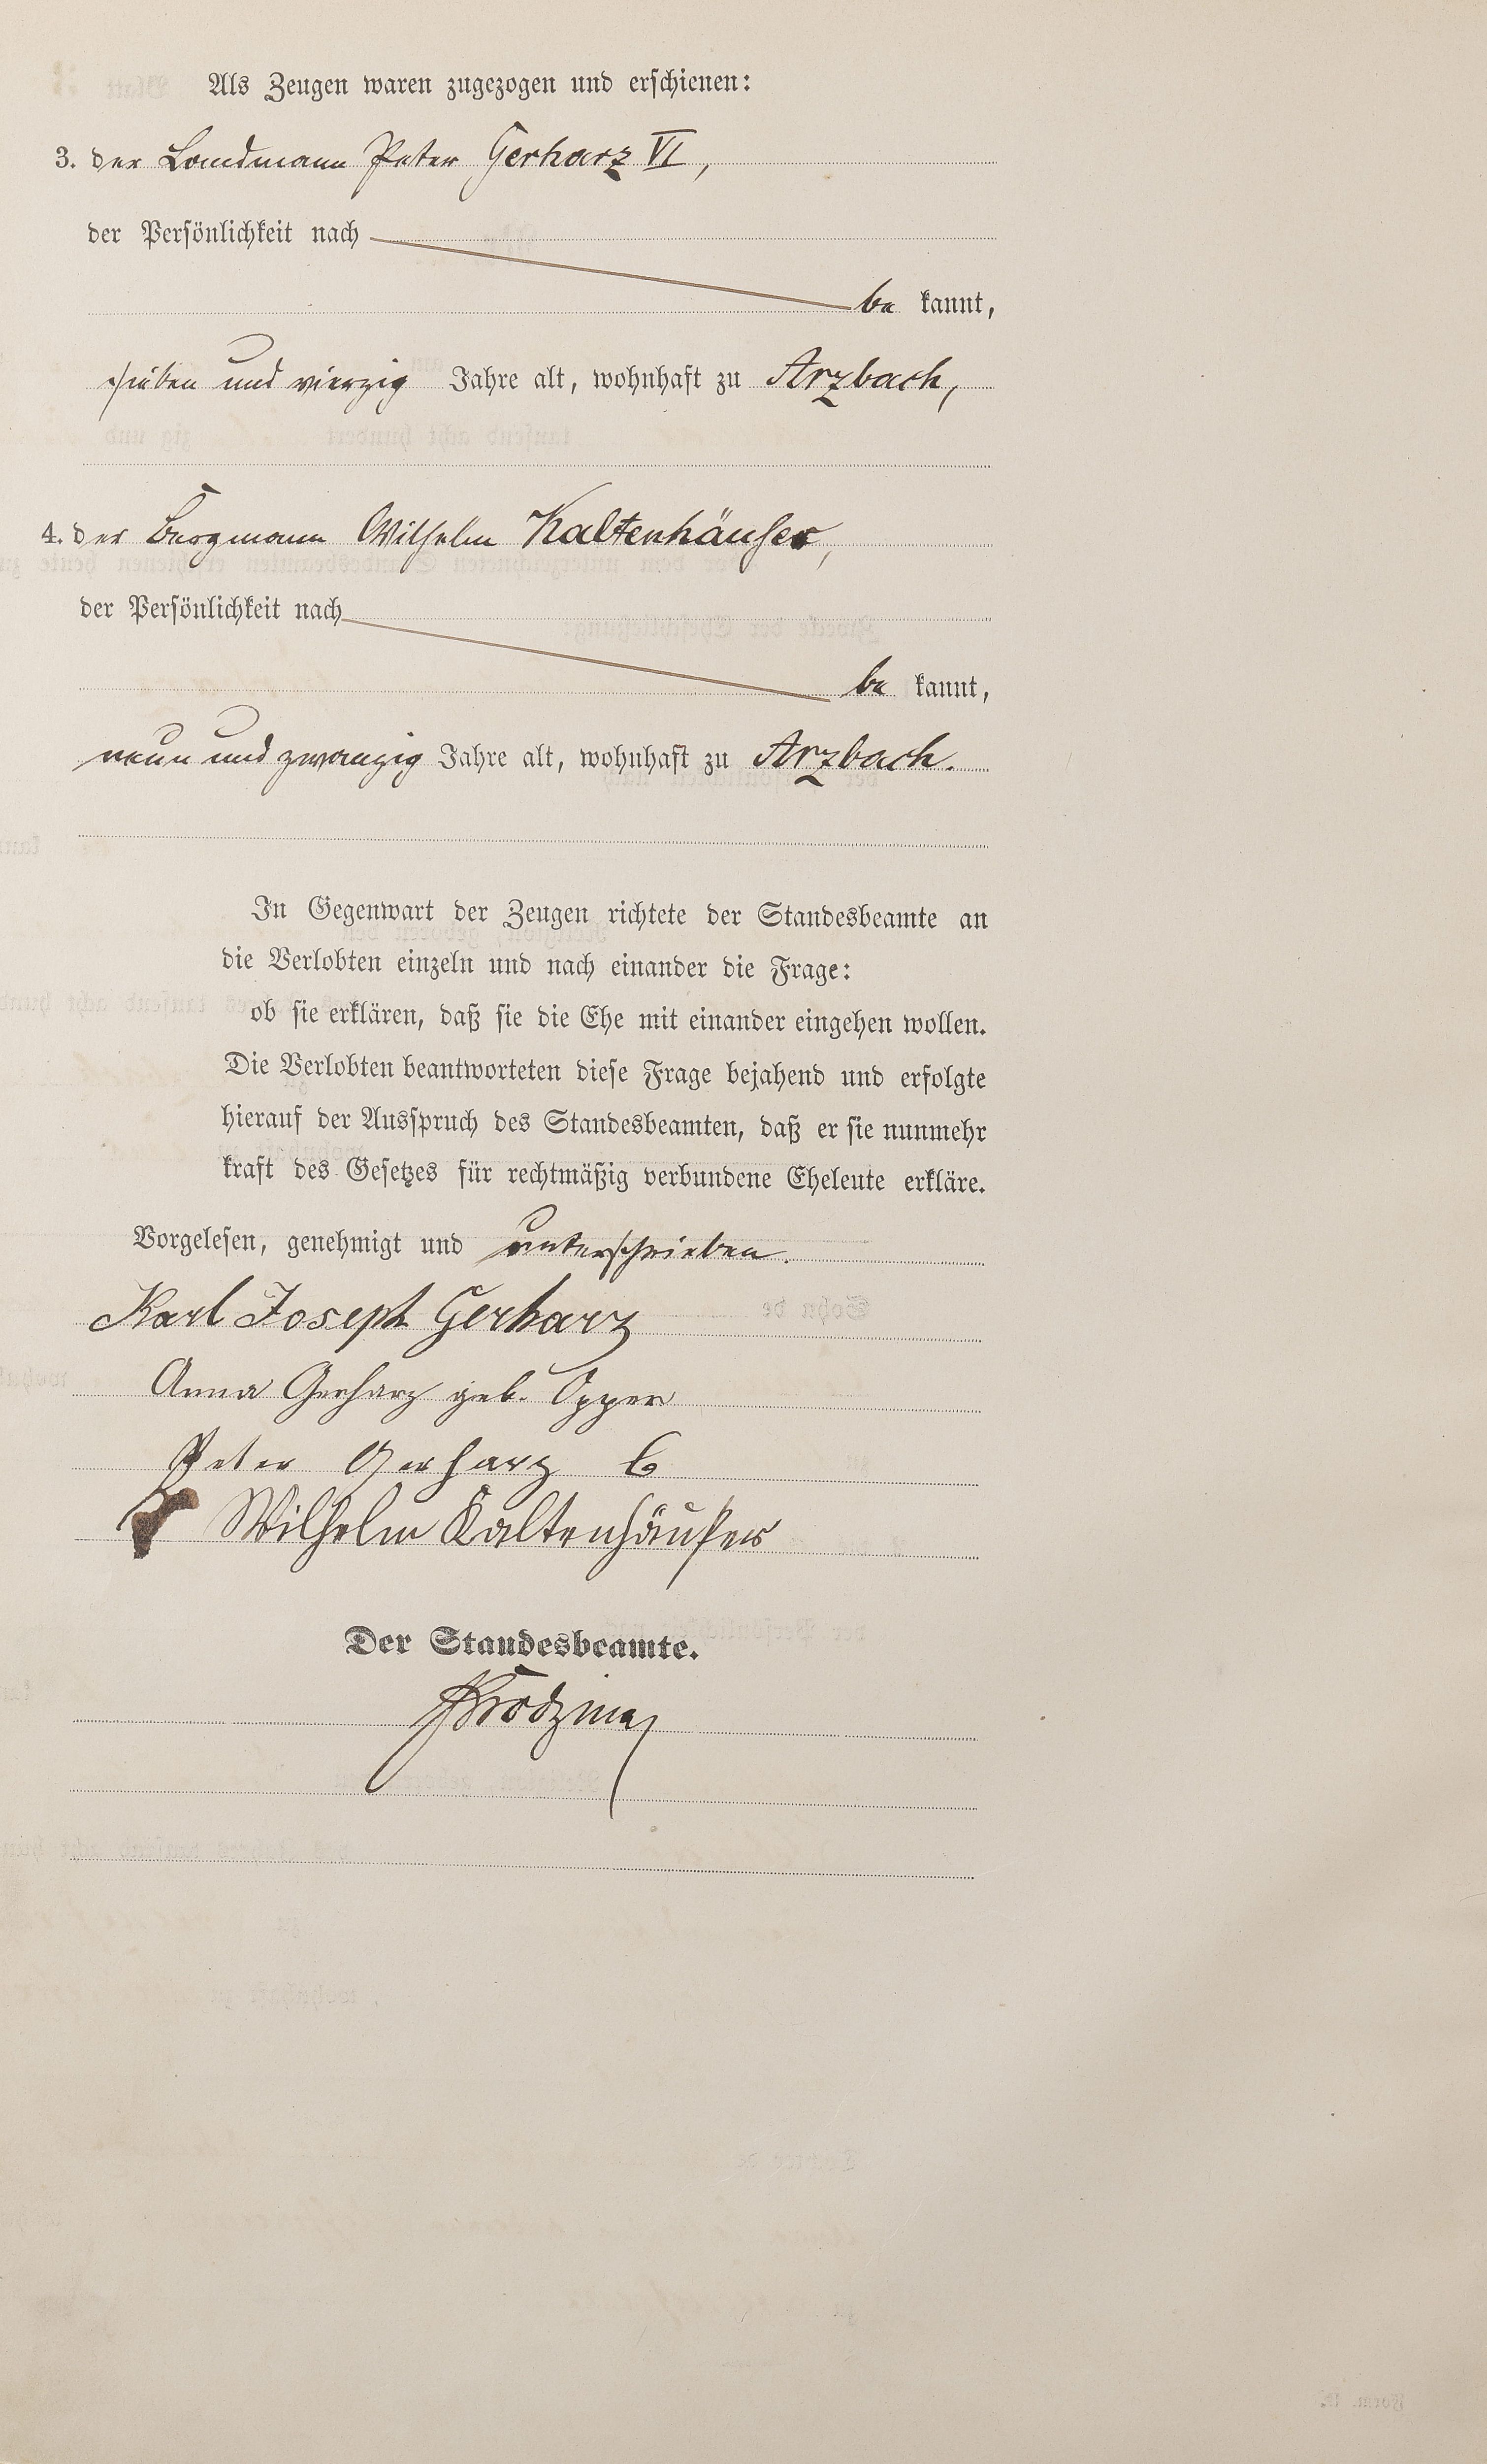 Als Zeugen waren zugezogen und erschienen:
3. der Landmann Peter Gerharz VI,
der Persönlichkeit nach
be kannt,
sieben und vierzig Jahre alt, wohnhaft zu Arzbach,
4. der Bergmann Wilhelm Kaltenhäuser,
der Persönlichkeit nach
be kannt,
neun und zwanzig Jahre alt, wohnhaft zu Arzbach.
In Gegenwart der Zeugen richtete der Standesbeamte an
die Verlobten einzeln und nach einander die Frage:
ob sie erklären, daß sie die Ehe mit einander eingehen wollen.
Die Verlobten beantworteten diese Frage bejahend und erfolgte
hierauf der Ausspruch des Standesbeamten, daß er sie nunmehr
kraft des Gesetzes für rechtmäßig verbundene Eheleute erkläre.
Vorgelesen, genehmigt und unterschrieben.
Karl Joseph Gerharz
Anna Gerharz geb. Opper
Peter Gerharz 6
Wilhelm Kaltenhäuser
Der Standesbeamte.